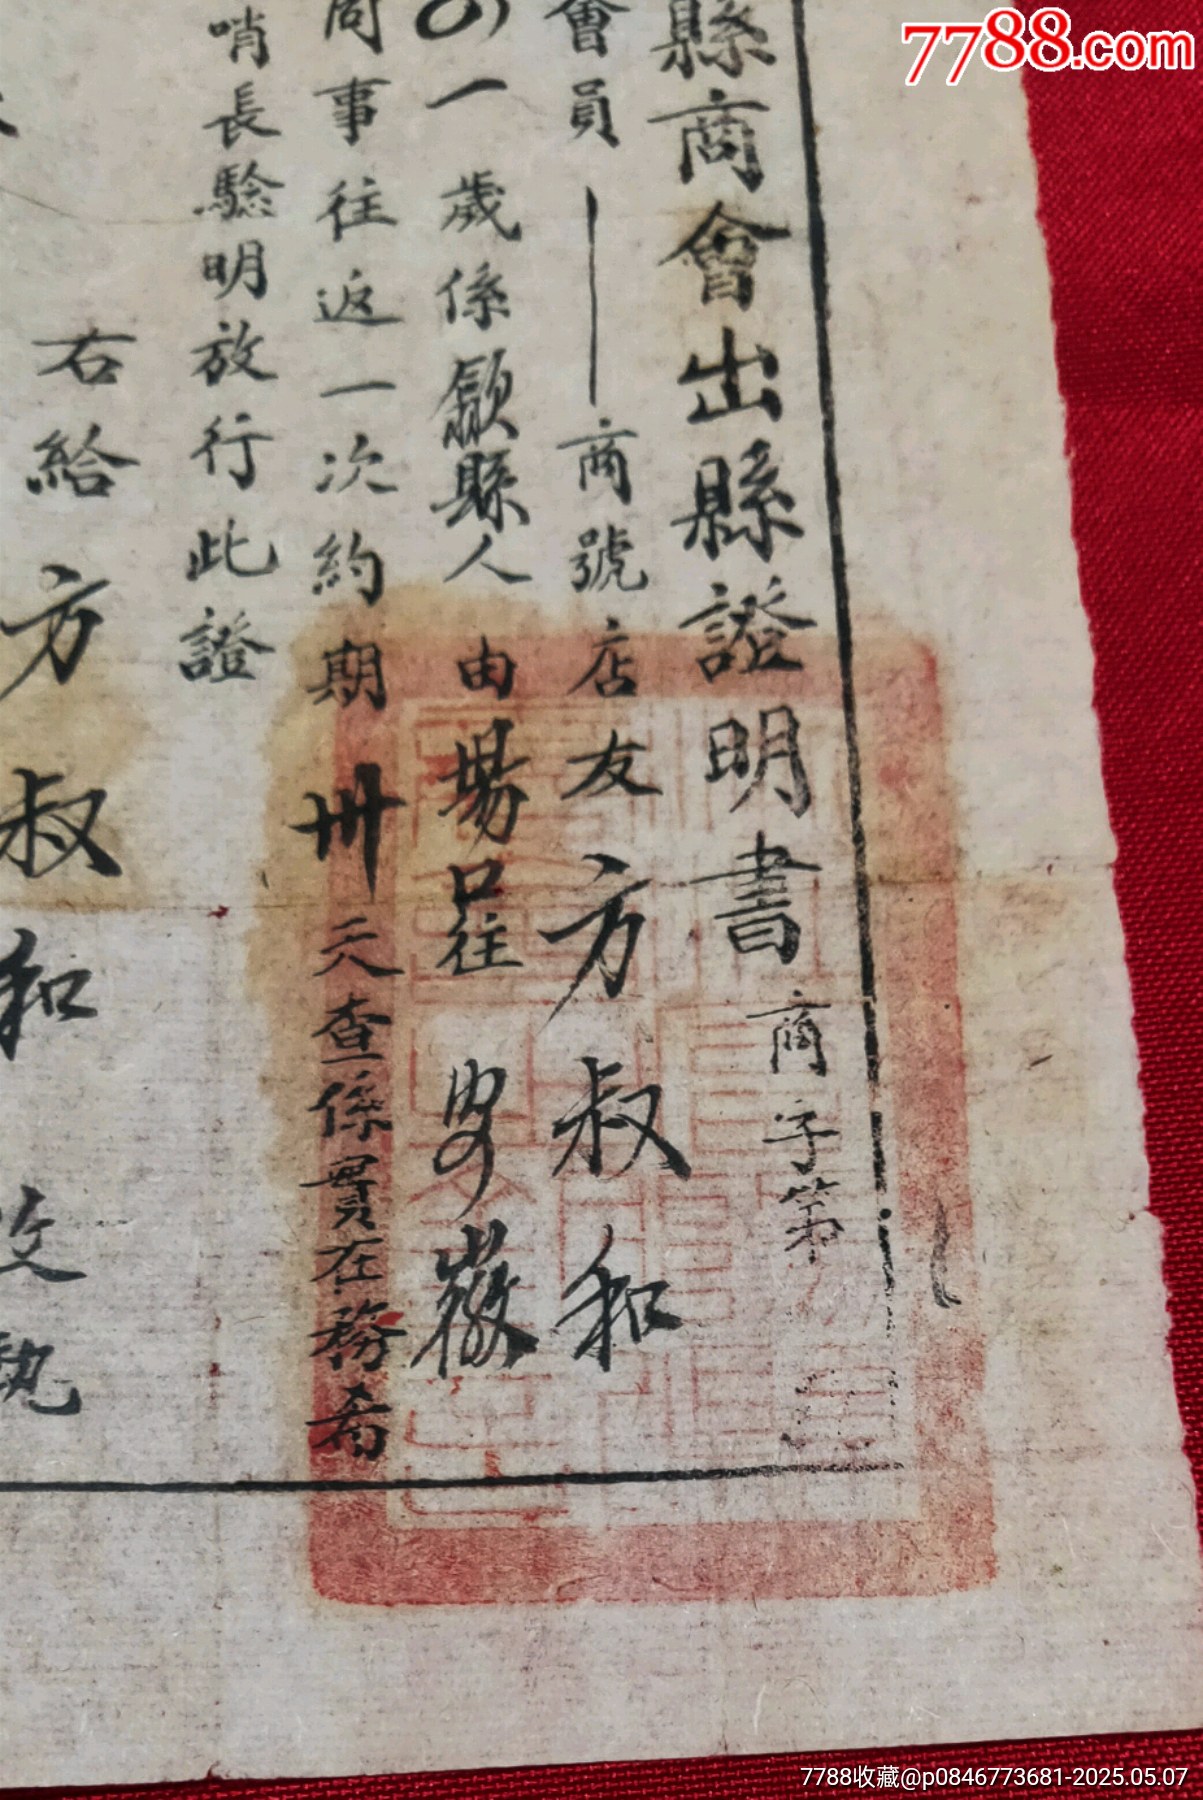 7788.com
縣商會出縣證明書 商字第
會員 商號店友方叔和
一歲係歙縣人 由場口往 徽
事往返一次約期卅天查係實在務希
哨長驗明放行此證
右給 方叔和 收執
7788收藏@p0846773681-2025.05.07